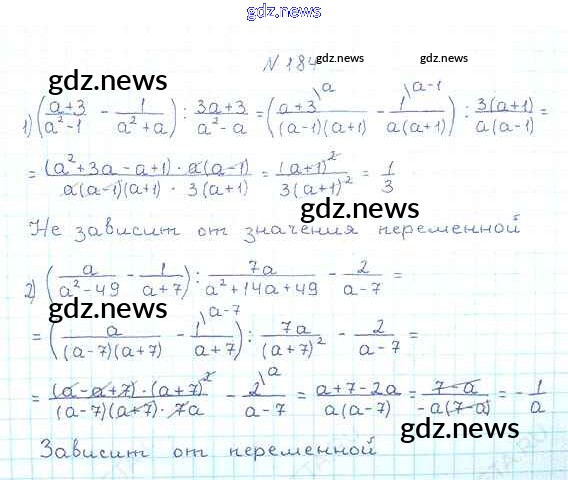 gdz.news
N 184
gdz.news gdz.news
gdz.news gdz.news
1) ((a+3)/(a²-1) - 1/(a²+a)) : (3a+3)/(a²-a) = ((a+3)\a/((a-1)(a+1)) - 1\a-1/(a(a+1))) : 3(a+1)/(a(a-1)) =
= (a²+3a-a+1)·a(a-1)/(a(a-1)(a+1)·3(a+1)) = (a+1)²/(3(a+1)²) = 1/3
gdz.news gdz.news
Не зависит от значения переменной
2) (a/(a²-49) - 1/(a+7)) : 7a/(a²+14a+49) - 2/(a-7) =
gdz.news gdz.news
= (a/((a-7)(a+7)) - 1\a-7/(a+7)) : 7a/(a+7)² - 2/(a-7) =
= (a-a+7)·(a+7)²/((a-7)(a+7)·7a) - 2\a/(a-7) = (a+7-2a)/(a(a-7)) = (7-a)/(-a(7-a)) = -1/a
gdz.news
Зависит от переменной